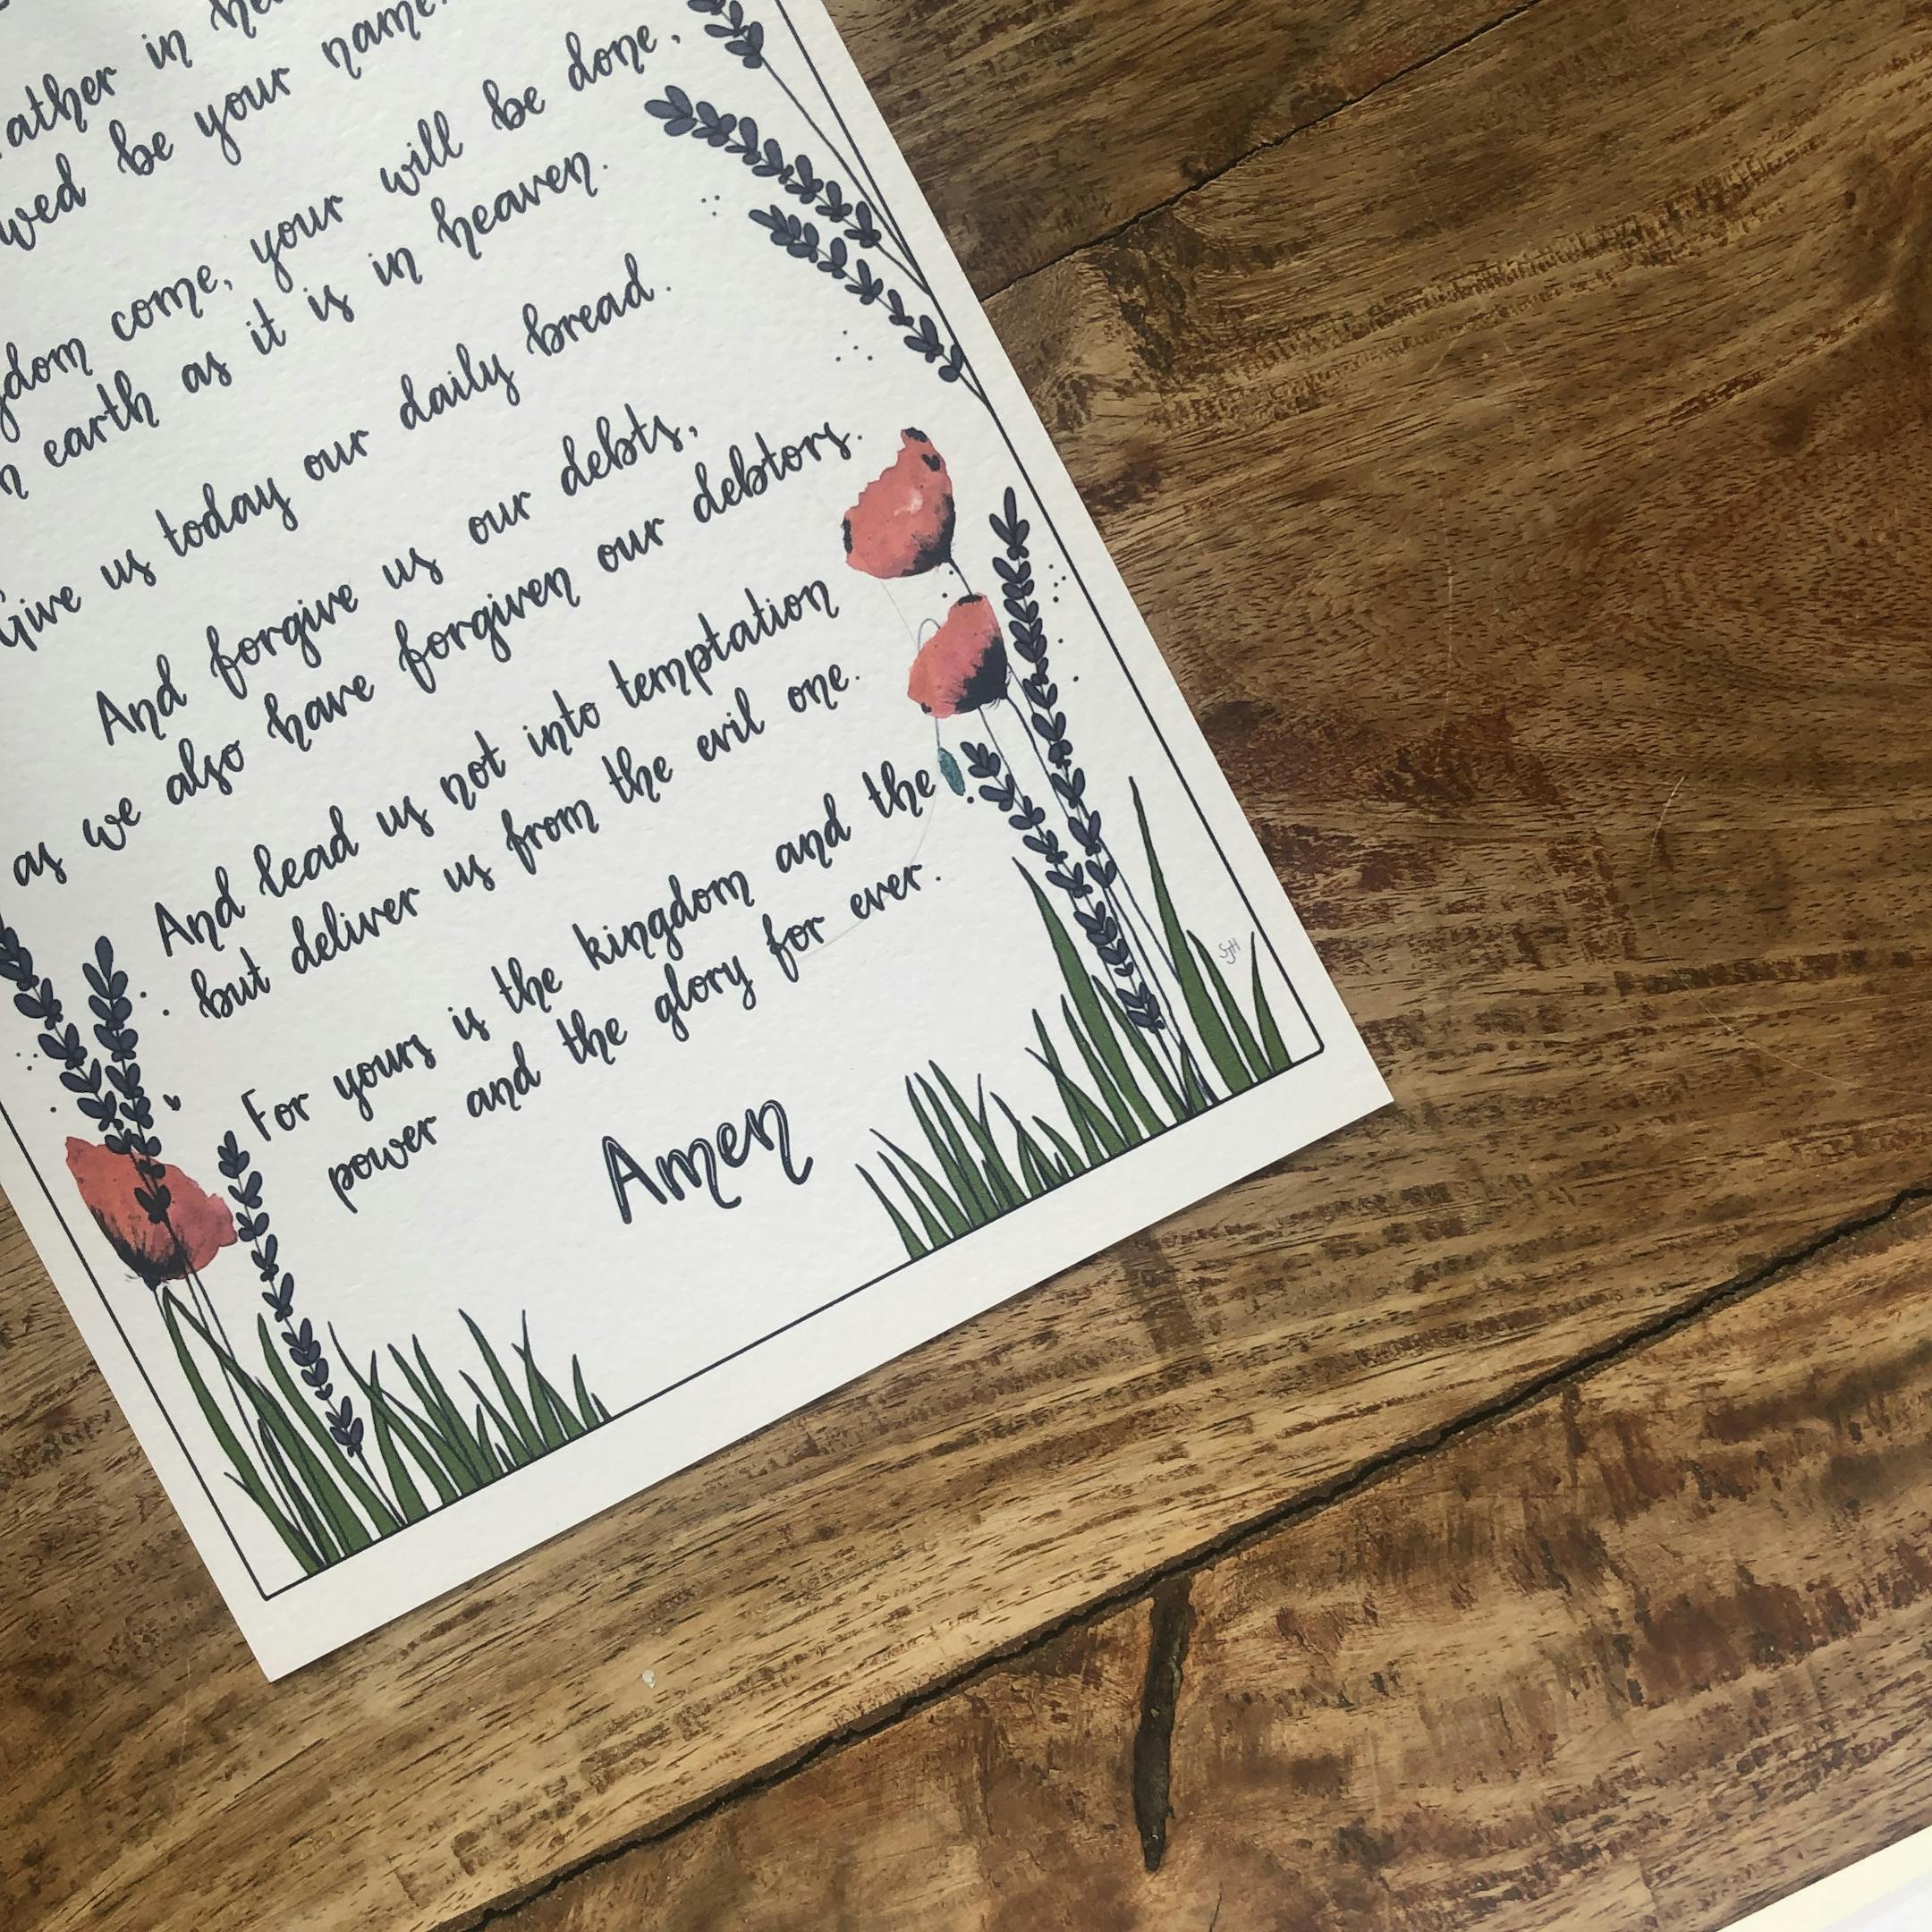 in
be your name
come, your will be done,
earth as it is in heaven.
Give us today our daily bread.
And forgive us our debts,
as we also have forgiven our debtors.
And lead us not into temptation
but deliver us from the evil one.
For yours is the kingdom and the
power and the glory for ever.
Amen
SJH